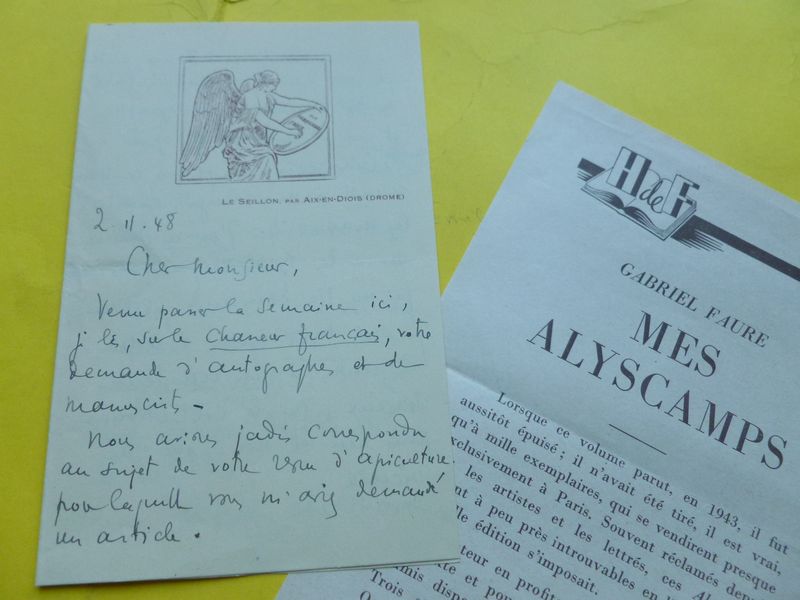 LE SEILLON, PAR AIX-EN-DIOIS (DROME)
2.11.48
Cher Monsieur,
Venu passer la semaine ici,
je lis, sur le Chasseur français, votre
demande d'autographes et de
manuscrits -
Nous avions jadis correspondu
au sujet de votre revue d'apiculture
pour laquelle vous m'aviez demandé
un article.
H de F
GABRIEL FAURE
MES
ALYSCAMPS
Lorsque ce volume parut, en 1943, il fut
aussitôt épuisé ; il n'avait été tiré, il est vrai,
qu'à mille exemplaires, qui se vendirent presque
exclusivement à Paris. Souvent réclamés
les artistes et les lettrés, ces
nt à peu près introuvables en
le édition s'imposait.
teur en profit
te et por
mis dispo
Trois